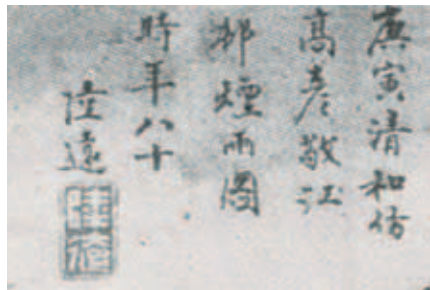 庚寅清和仿
高彥敬江
邨煙雨圖
時年八十
陸遠